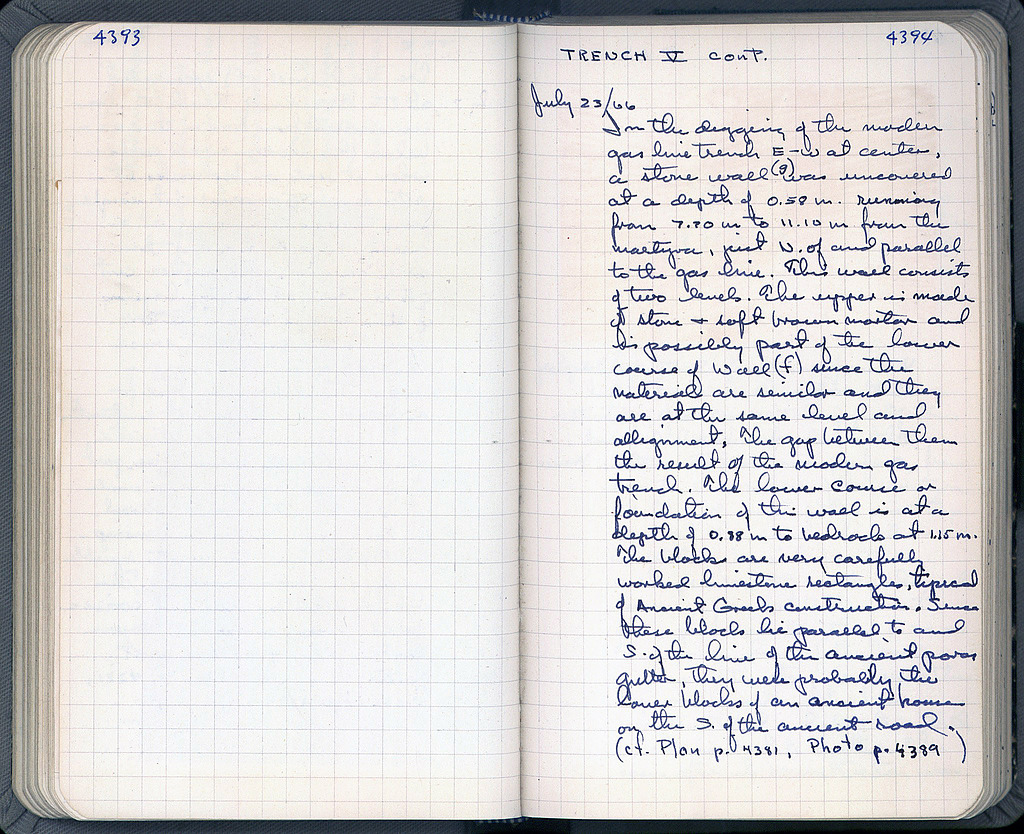 4393
4394
TRENCH V cont.
July 23/66
In the digging of the modern
gas line trench E-W at center,
a stone wall (g) was uncovered
at a depth of 0.58 m. running
from 7.70 m to 11.10 m from the
martyra, just N. of and parallel
to the gas line. This wall consists
of two levels. The upper is made
of stone + soft brown mortar and
is possibly part of the lower
course of Wall (f) since the
materials are similar and they
are at the same level and
allignment. The gap between them
the result of the modern gas
trench. The lower course or
foundation of this wall is at a
depth of 0.88 m to bedrock at 1.15 m.
The blocks are very carefully
worked limestone rectangles, tipical
of Ancient Greek construction. Since
these blocks lie parallel to and
S. of the line of the ancient poros
gutter, they were probably the
lower blocks of an ancient house
on the S. of the ancient road.
(cf. Plan p. 4381, Photo p. 4389)